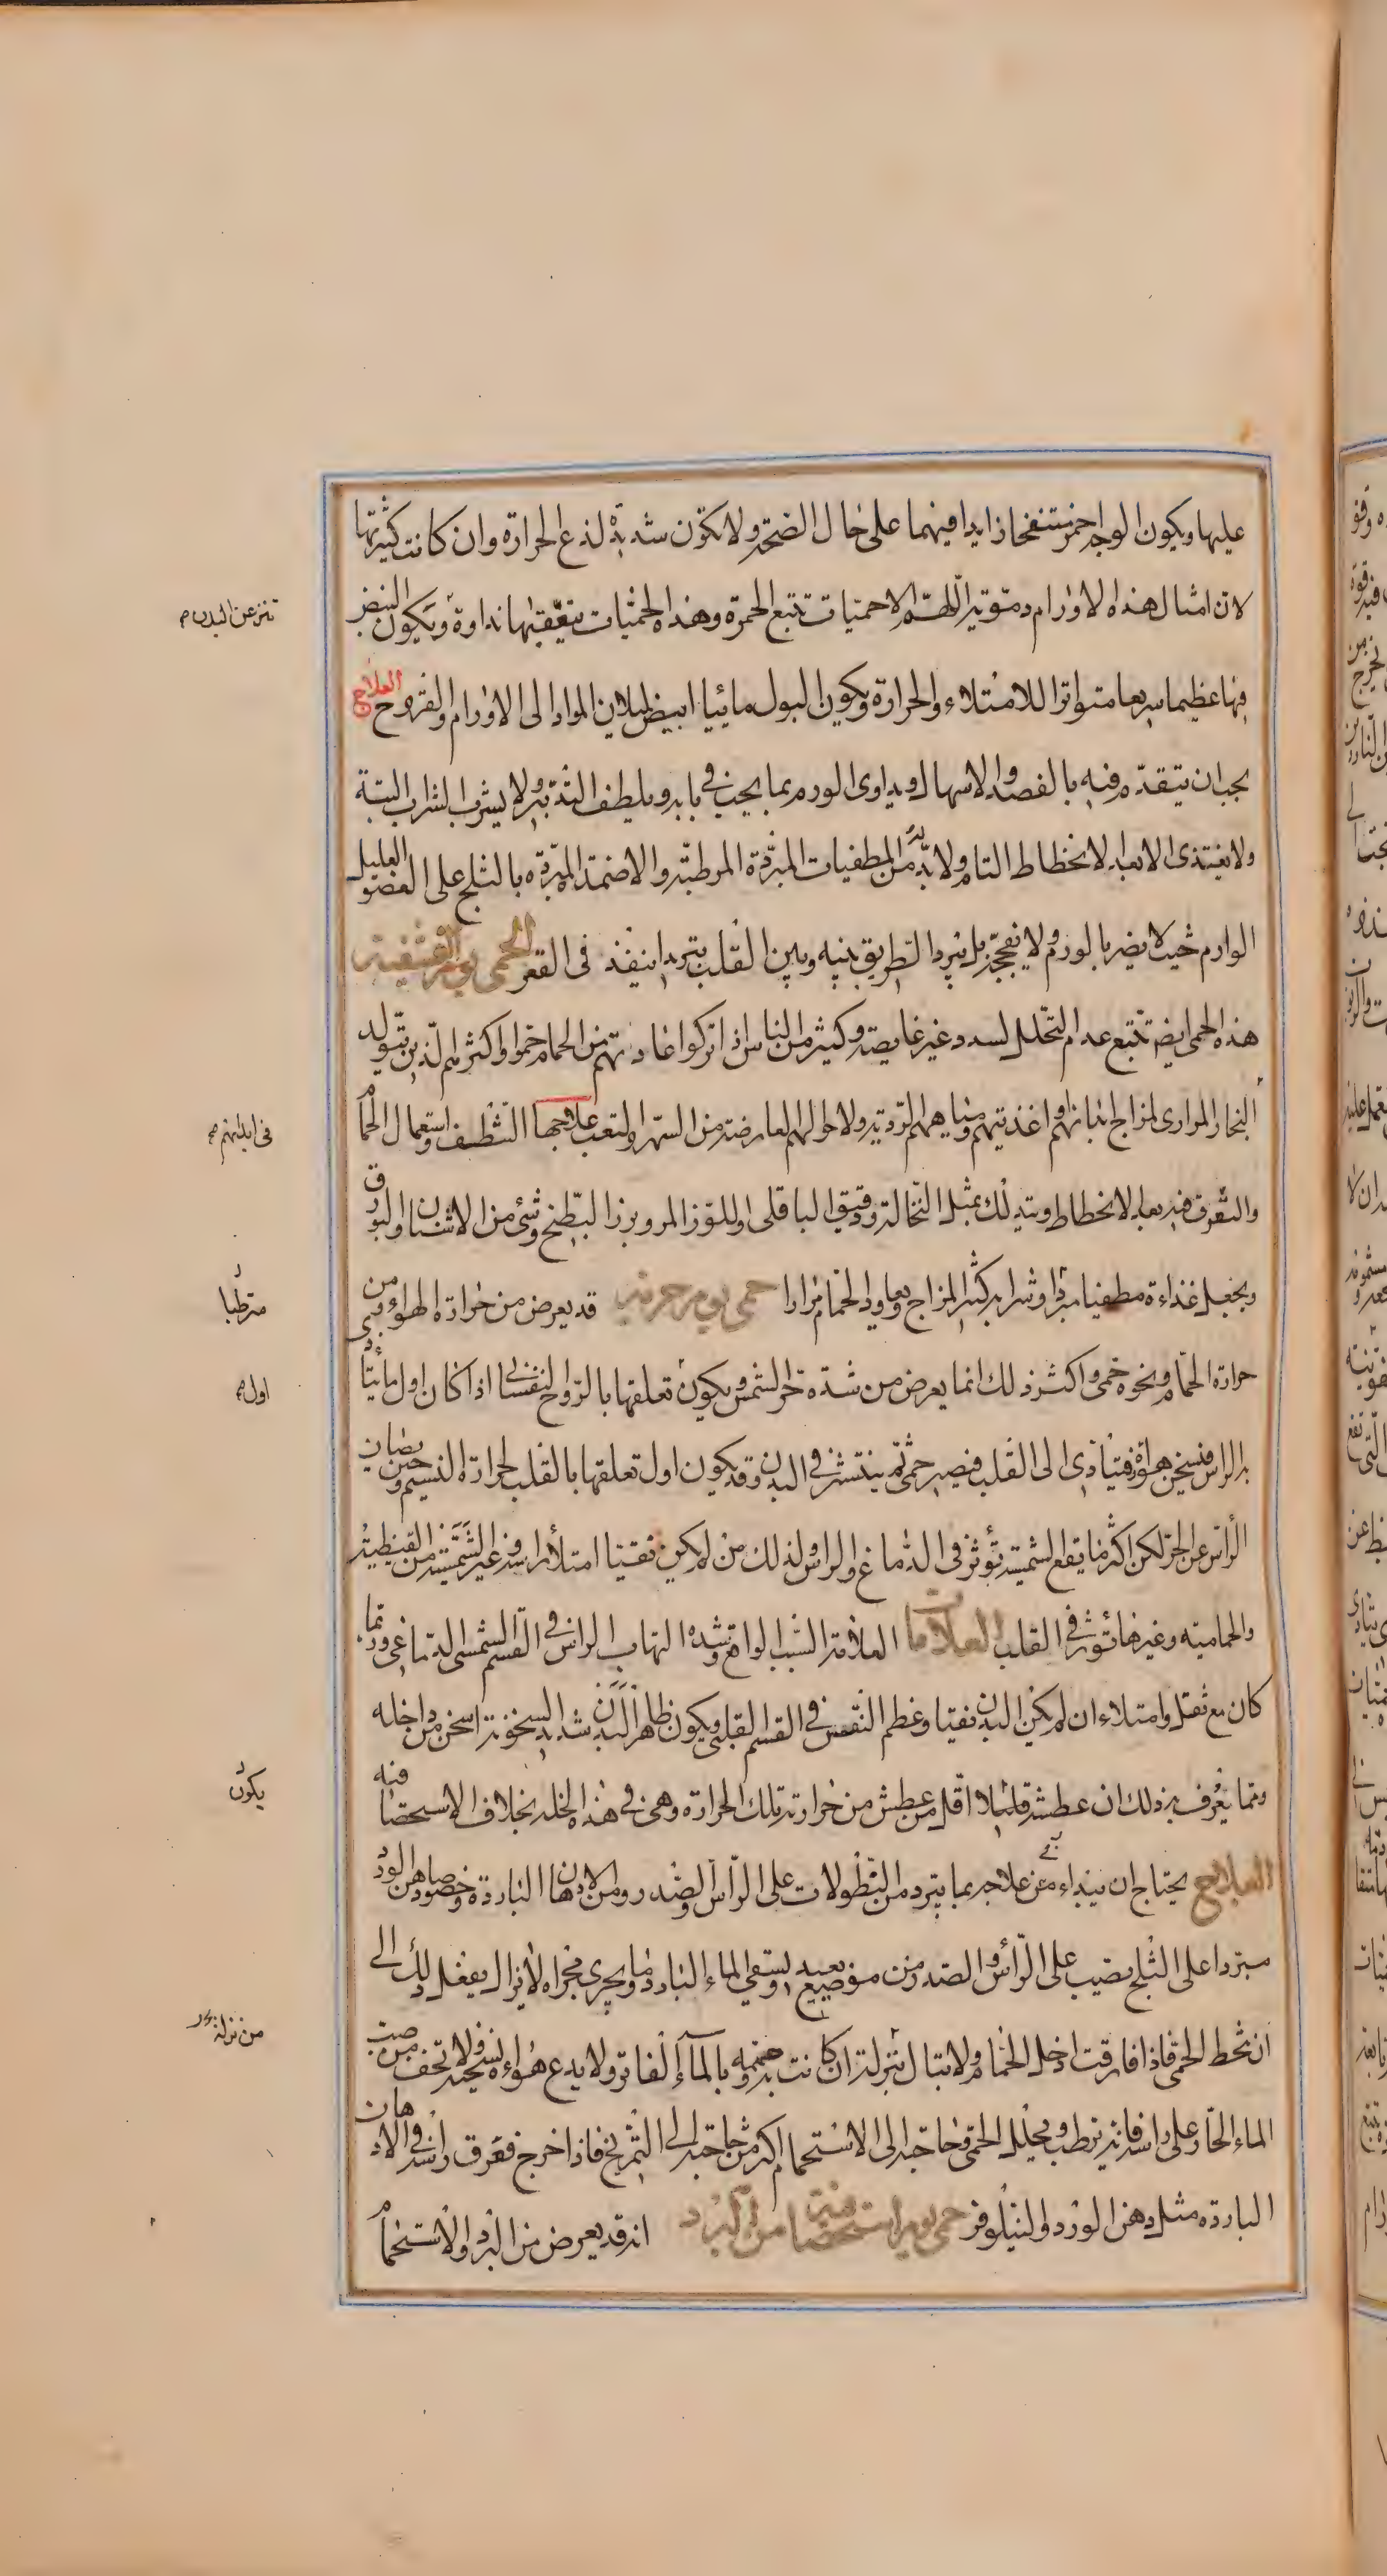 عليها ويكون الوجه احمر منتفخا زايدا فيهما على حال الصحة ولا تكون شديدة لذع الحرارة وان كانت كثيرتها
لان امثال هذه الاورام دموية اللهم الا حميات تتبع الحمرة وهذه الحميات تتعقبها نداوة ويكون النبض
تنز عن البدن
فيها عظيما سريعا متواترا للامتلاء والحرارة ويكون البول مائيا ابيض لميلان المواد الى الاورام والقروح العلاج
يجب ان يتقدم فيه بالفصد والاسهال ويداوى الورم بما يجب في بابه ويلطف التدبير ولا يشرب الشراب البتة
ولا يغتذى الا بعد الانحطاط التام ولا بد له من المطفيات المبردة المرطبة والاضمدة المبردة بالثلج على العضو العليل
الوارم حيث لا يضر بالورم ولا يفججه بل يبرد الطريق بينه وبين القلب تبريدا ينفذ في القعر الحمى يوم القشفية
هذه الحمى ايضا تتبع عدم التحلل لسدد غير غايصة وكثير من الناس اذا تركوا عادتهم من الحمام حموا واكثرهم الذين يتولد
البخار المرارى لمزاج ابدانهم واغذيتهم ومياههم الردية ولاحوالهم العارضة من السهر والتعب علاجها التنظف واستعمال الحمام
في ابدانهم
والتعرق فيه بعد الانحطاط ويتدلك بمثل النخالة ودقيق الباقلى او اللوز المر وبزر البطيخ وشئ من الاشنان والبورق
ويجعل غذاءه مطفيا مبردا وشرابه كثير المزاج ويعاود الحمام مرارا حمى يوم حرية قد يعرض من حرارة الهواء ومن
مرطبا
حرارة الحمام ونحوه حمى واكثر ذلك انما يعرض من شدة حر الشمس ويكون تعلقها بالروح النفسانى اذا كان اول ما يتأدى
اول
به الراس فسخن هواؤه فيتأدى الى القلب فيصير حمى ثم ينتشر في البدن وقد يكون اول تعلقها بالقلب لحرارة النسيم وحين يصان
الراس عن الحر لكن اكثر ما يقع الشمسية تؤثر في الدماغ والراس لذلك من لم يكن نقيا امتلأ راسه وغير الشمسية من القيظية
والحمامية وغيرها تؤثر في القلب العلامات العلامة السبب الواقع وشدة التهاب الراس في القسم الشمسى الدماغى وربما
كان مع ثقل وامتلاء ان لم يكن البدن نقيا وعظم النفس في القسم القلبى ويكون ظاهر البدن شديد السخونة اسخن من داخله
ومما يعرف به ذلك ان عطشه قليلا اقل من عطش من حرارته تلك الحرارة وهى في هذه الخلة بخلاف الاستحصافية
يكون
العلاج يحتاج ان يبتداء في علاجه بما يبرد من النطولات على الراس والصدر ومن الادهان الباردة وخصوصا دهن الورد
مبردا على الثلج يصب على الراس والصدر من موضع بعيد ويسقى الماء البارد وما يجرى مجراه لا يزال يفعل ذلك الى
ان تحط الحمى فاذا فارقت ادخل الحمام ولا تبال بنزلة ان كانت به وحممه بالماء الفاتر ولا يدع هواءه يسخنه ولا تخف من صب
من نزلة
الماء الحار على راسه فانه يرطب ويحلل الحمى وحاجته الى الاستحمام اكثر من حاجته الى التمريخ فاذا خرج فغرق راسه في الادهان
الباردة مثل دهن الورد والنيلوفر حمى يوم استحصافية من البرد انه قد يعرض من البرد والاستحمام